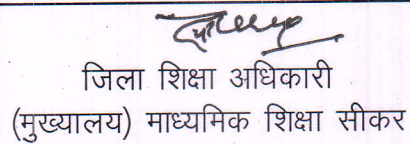 जिला शिक्षा अधिकारी
(मुख्यालय) माध्यमिक शिक्षा सीकर